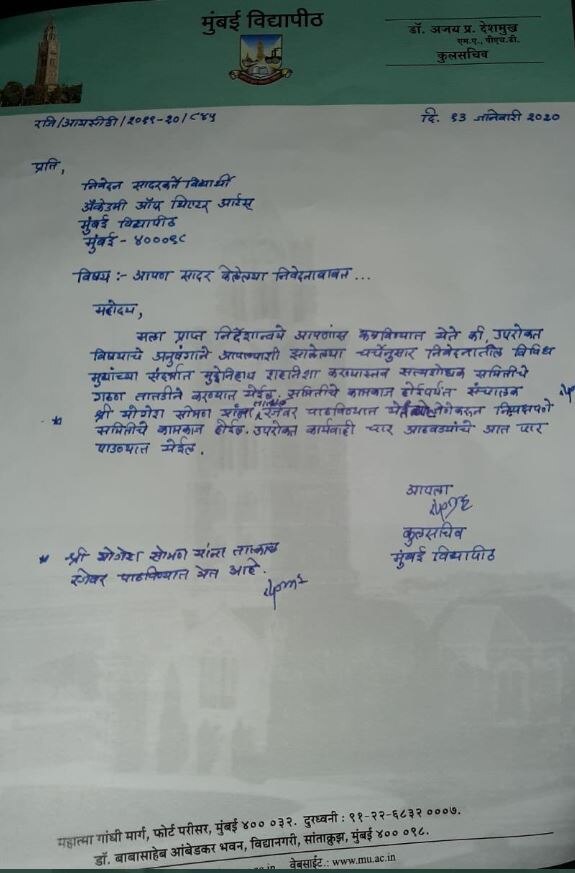 मुंबई विद्यापीठ
डॉ. अजय प्र. देशमुख
एम.ए., पीएच.डी.
कुलसचिव
रजि/आयसीडी/२०१९-२०/८४५
दि. १३ जानेवारी २०२०
प्रति,
निवेदन सादरकर्ते विद्यार्थी
अ‍ॅकेडमी ऑफ थिएटर आर्टस्
मुंबई विद्यापीठ
मुंबई - ४०००९८
विषय :- आपण सादर केलेल्या निवेदनाबाबत ...
महोदय,
मला प्राप्त निर्देशान्वये आपणांस कळविण्यात येते की, उपरोक्त
विषयाचे अनुषंगाने आपल्याशी झालेल्या चर्चेनुसार निवेदनातील विविध
मुद्यांच्या संदर्भात मुद्देनिहाय शहानिशा करण्यास्तव सत्यशोधक समितीचे
गठण तातडीने करण्यात येईल. समितीचे कामकाज होईपर्यंत संचालक
* श्री योगेश सोमण यांना तात्काळ रजेवर पाठविण्यात येत जेणेकरून निष्पक्षपणे
समितीचे कामकाज होईल. उपरोक्त कार्यवाही चार आठवड्यांचे आत पार
पाडण्यात येईल.
आपला
कुलसचिव
मुंबई विद्यापीठ
* श्री योगेश सोमण यांना तात्काळ
रजेवर पाठविण्यात येत आहे.
महात्मा गांधी मार्ग, फोर्ट परीसर, मुंबई ४०० ०३२. दुरध्वनी : ९१-२२-६८३२ ०००७.
डॉ. बाबासाहेब आंबेडकर भवन, विद्यानगरी, सांताक्रुझ, मुंबई ४०० ०९८.
वेबसाईट.: www.mu.ac.in